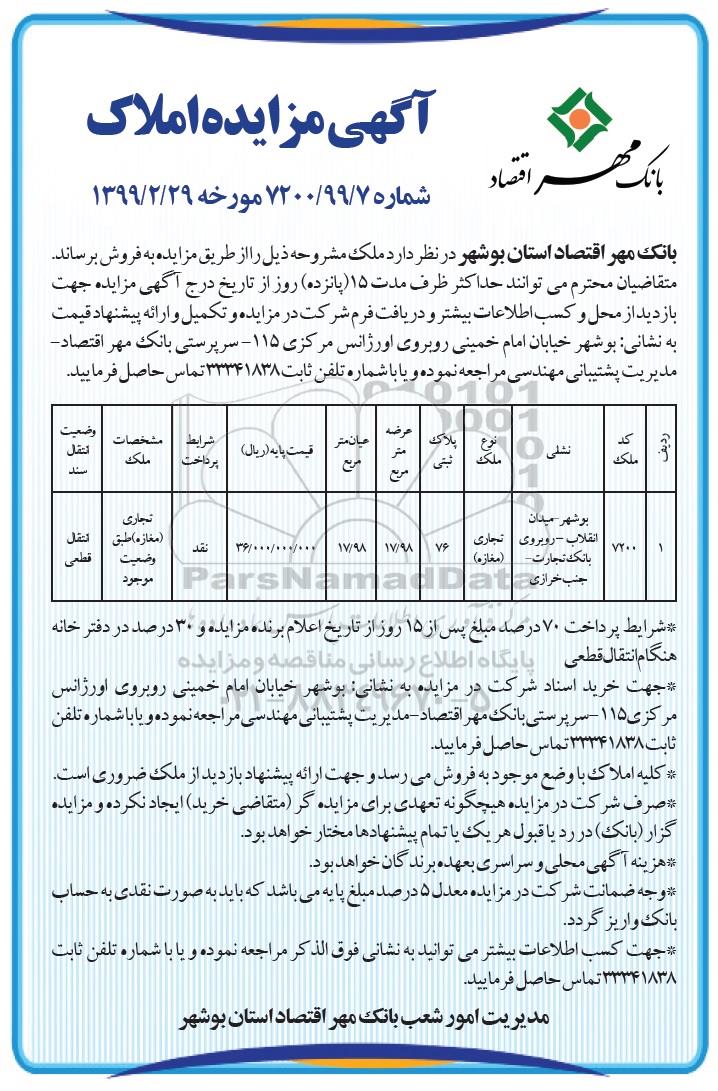 بانک مهر اقتصاد
آگهی مزایده املاک
شماره ۷۲۰۰/۹۹/۷ مورخه ۱۳۹۹/۲/۲۹
بانک مهر اقتصاد استان بوشهر در نظر دارد ملک مشروحه ذیل را از طریق مزایده به فروش برساند.
متقاضیان محترم می توانند حداکثر ظرف مدت ۱۵(پانزده) روز از تاریخ درج آگهی مزایده جهت
بازدید از محل و کسب اطلاعات بیشتر و دریافت فرم شرکت در مزایده و تکمیل و ارائه پیشنهاد قیمت
به نشانی: بوشهر خیابان امام خمینی روبروی اورژانس مرکزی ۱۱۵- سرپرستی بانک مهر اقتصاد-
مدیریت پشتیبانی مهندسی مراجعه نموده و یا با شماره تلفن ثابت ۳۳۳۴۱۸۳۸ تماس حاصل فرمایید.
ردیف | کد ملک | نشانی | نوع ملک | پلاک ثبتی | عرضه متر مربع | عیان متر مربع | قیمت پایه (ریال) | شرایط پرداخت | مشخصات ملک | وضعیت انتقال سند
۱ | ۷۲۰۰ | بوشهر-میدان انقلاب – روبروی بانک تجارت- جنب خرازی | تجاری (مغازه) | ۷۶ | ۱۷/۹۸ | ۱۷/۹۸ | ۳۶/۰۰۰/۰۰۰/۰۰۰ | نقد | تجاری (مغازه) طبق وضعیت موجود | انتقال قطعی
ParsNamadData
پایگاه اطلاع رسانی مناقصه و مزایده
*شرایط پرداخت ۷۰ درصد مبلغ پس از ۱۵ روز از تاریخ اعلام برنده مزایده و ۳۰ درصد در دفتر خانه
هنگام انتقال قطعی
*جهت خرید اسناد شرکت در مزایده به نشانی: بوشهر خیابان امام خمینی روبروی اورژانس
مرکزی ۱۱۵-سرپرستی بانک مهر اقتصاد-مدیریت پشتیبانی مهندسی مراجعه نموده و یا با شماره تلفن
ثابت ۳۳۳۴۱۸۳۸ تماس حاصل فرمایید.
*کلیه املاک با وضع موجود به فروش می رسد و جهت ارائه پیشنهاد بازدید از ملک ضروری است.
*صرف شرکت در مزایده هیچگونه تعهدی برای مزایده گر (متقاضی خرید) ایجاد نکرده و مزایده
گزار (بانک) در رد یا قبول هر یک یا تمام پیشنهادها مختار خواهد بود.
*هزینه آگهی محلی و سراسری بعهده برندگان خواهد بود.
*وجه ضمانت شرکت در مزایده معدل ۵ درصد مبلغ پایه می باشد که باید به صورت نقدی به حساب
بانک واریز گردد.
*جهت کسب اطلاعات بیشتر می توانید به نشانی فوق الذکر مراجعه نموده و یا با شماره تلفن ثابت
۳۳۳۴۱۸۳۸ تماس حاصل فرمایید.
مدیریت امور شعب بانک مهر اقتصاد استان بوشهر